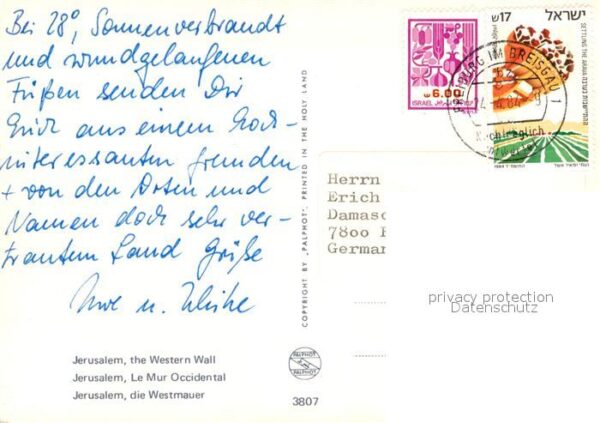 Bei 28°, Sonnenverbrannt
und wundgelaufenen
Füßen senden Dir
Erich aus einem hoch-
interessanten fremden
+ von den Orten und
Namen doch sehr ver-
trautem Land Grüße
Uwe u. Ulrike
Jerusalem, the Western Wall
Jerusalem, Le Mur Occidental
Jerusalem, die Westmauer
COPYRIGHT BY „PALPHOT" PRINTED IN THE HOLY LAND
PALPHOT
3807
6.00
ISRAEL
ישראל
17
SETTLING THE ARAVA
FREIBURG IM BREISGAU 1
Nachträglich
entwertet
Herrn
Erich
Damasc
7800
German
privacy protection
Datenschutz